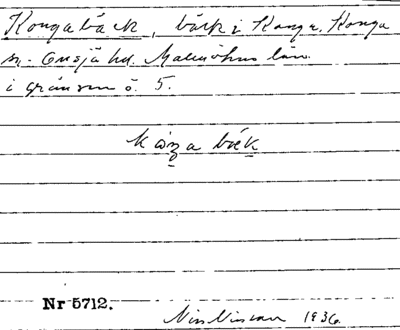 Kongabäck, bäck i Konga, Konga
sn. Onsjö hd. Malmöhus län
i gränsen ö. 5.
kåŋa bæk
Nr 5712.
Nils Nilsson 1936.